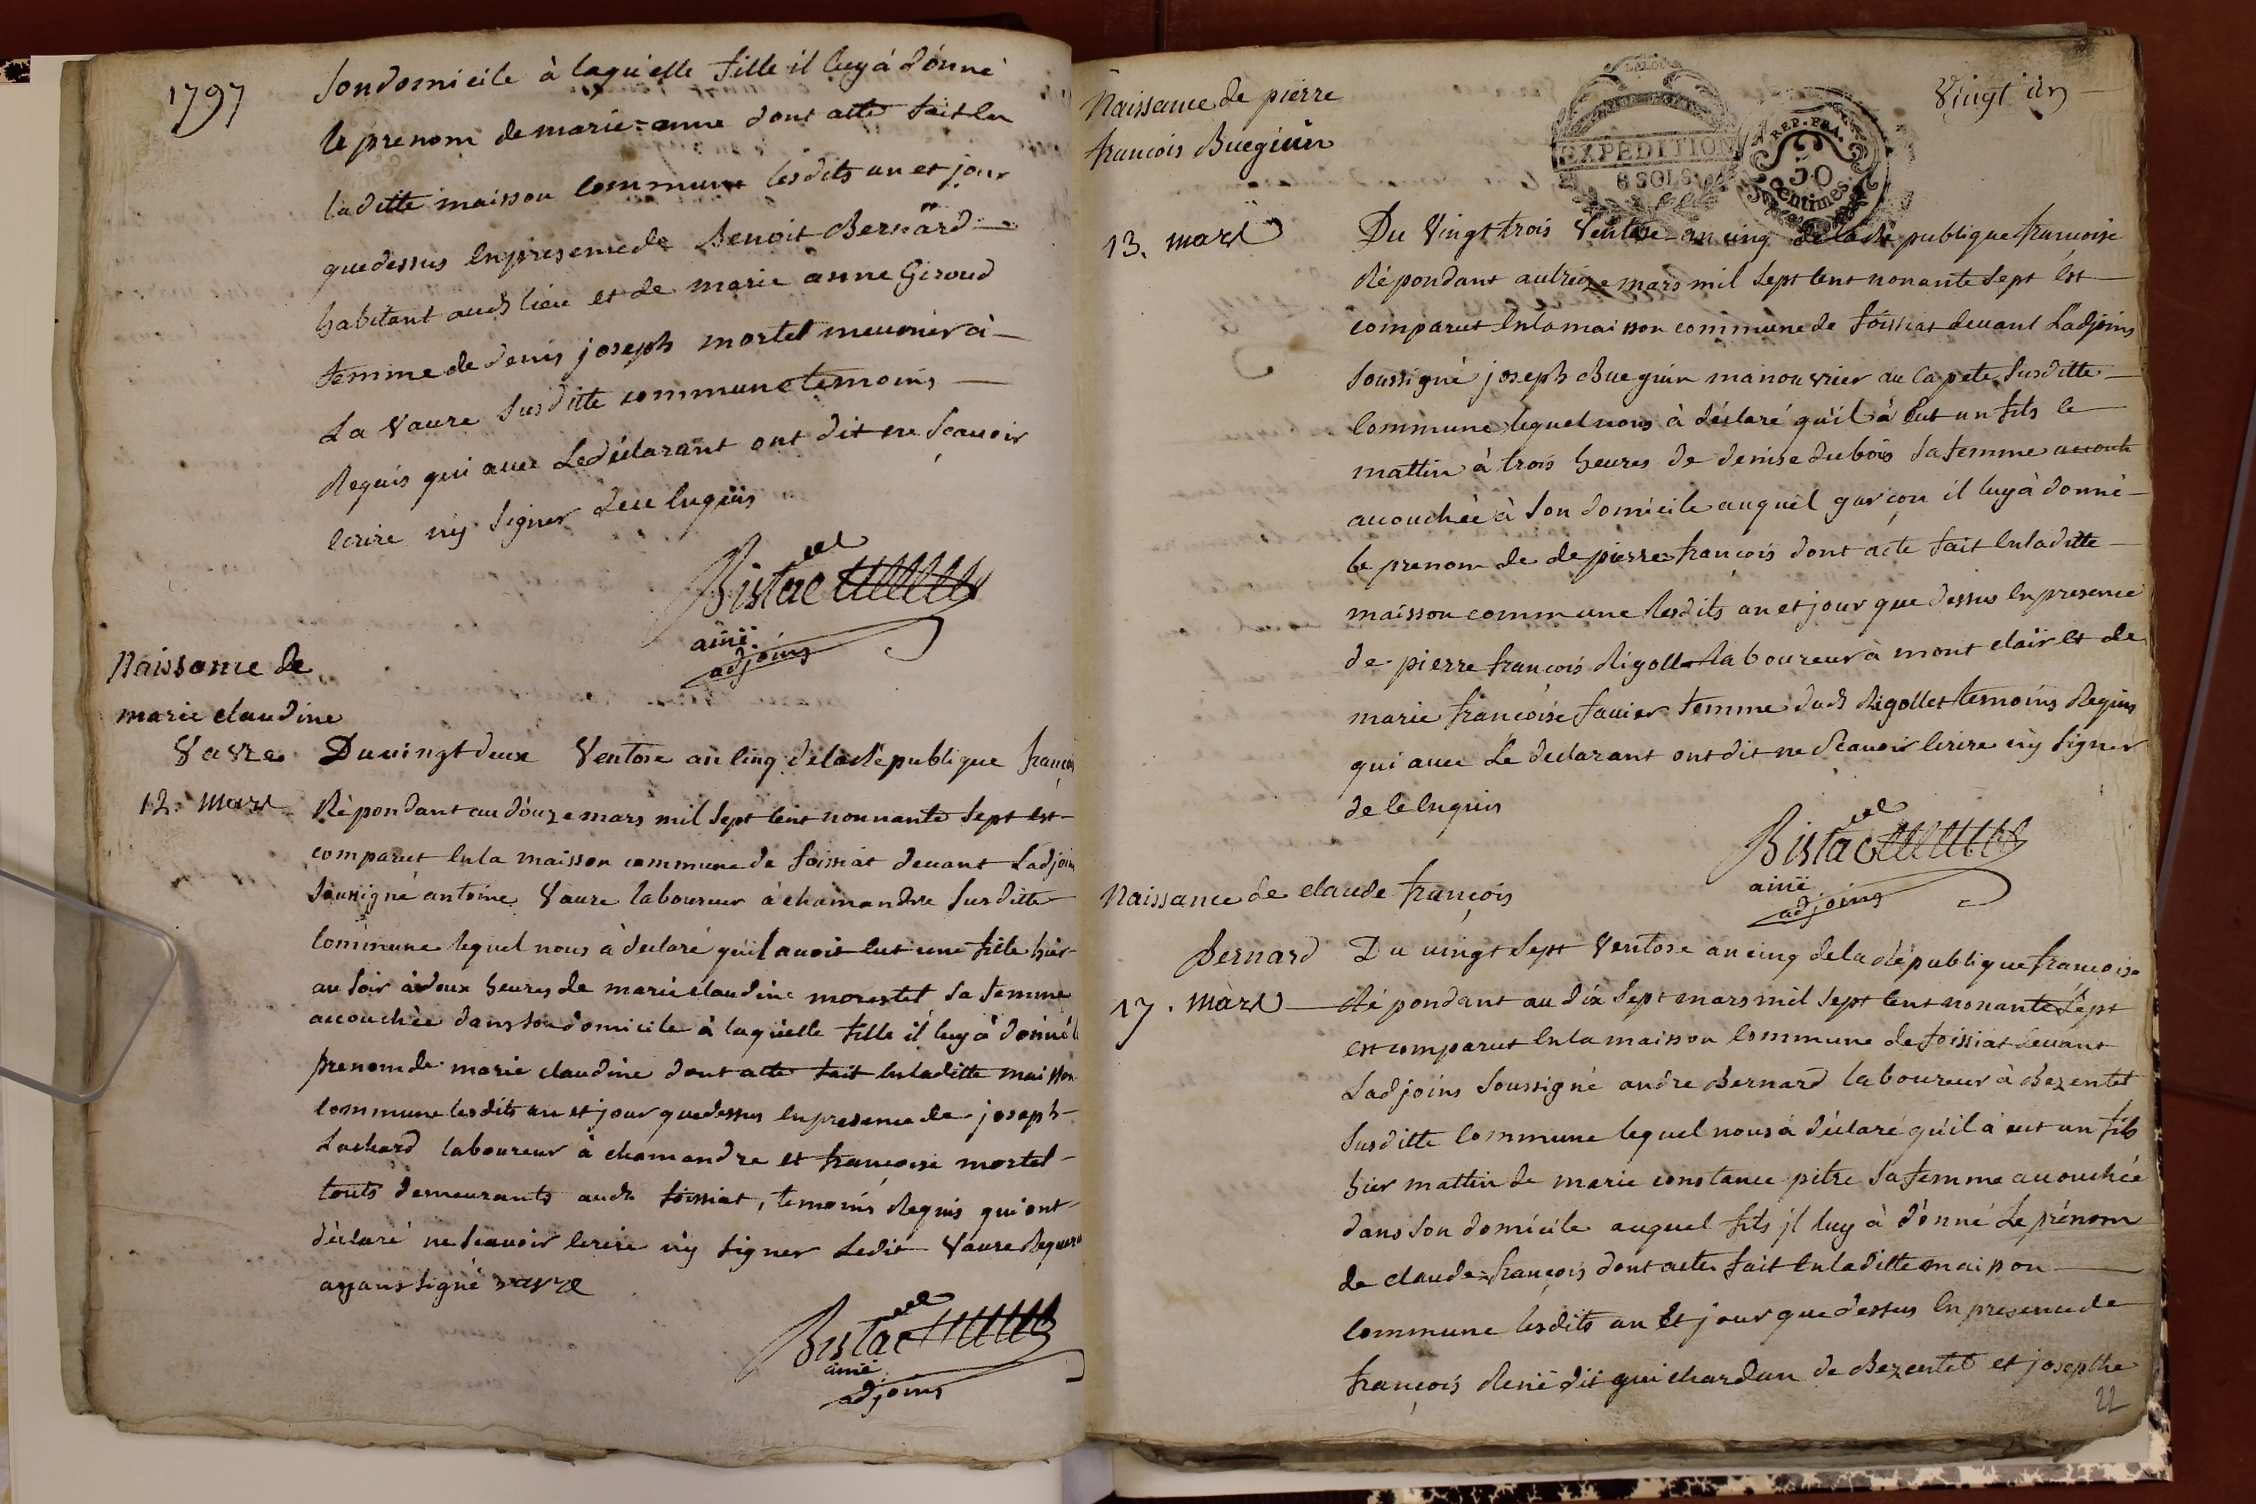 1797
Son domicile à laquelle fille il luy à donné
le prenom de marie=anne dont acte fait en
laditte maison commune lesdits an et jour
que dessus en presence de Benoit Bernard
habitant audt lieu et de marie anne Giroud
femme de denis joseph mortel meunier à
La Vavre susditte commune temoins
Requis qui avec Le déclarant ont dit ne scavoir
écrire ny signer de ce enquis
Bistac
ainé
adjoint
Naissance de
marie claudine
Vavre
Du vingt deux Ventose an cinq de la République françois
12. mars
Répondant au douze mars mil sept cent nonnante sept est
comparut en la maison commune de foissiat devant L'adjoin
soussigné antoine Vavre laboureur à chamandre susditte
commune lequel nous à declaré qu'il avoit eut une fille hier
au soir à deux heures de marie claudine morestel sa femme
accouchée dans son domicile à laquelle fille il luy à donné l
prenom de marie claudine dont acte fait en laditte maison
commune lesdits an et jour que dessus en presence de joseph
Lachard laboureur à chamandre et francoise mortel
touts demeurants audt foissiat, temoins Requis qui ont
declaré ne scavoir écrire ny signer Ledit Vavre Requera
ayant signé vavre
Bistac
ainé
adjoint
Naissance de pierre
francois Bueguin
EXPEDITION
6 SOLS
REP. FRA.
50
Centimes
Vingt un
13. mars
Du Vingt trois Ventose an cinq de la Republique francoise
Répondant au treize mars mil sept cent nonante sept est
comparut en la maison commune de foissiat devant L'adjoins
soussigné joseph Bueguin manouvrier au Capete susditte
commune lequel nous à déclaré qu'il à eut un fils le
mattin à trois heures de denise dubois sa femme accouch
accouchée à son domicile auquel garcon il luy à donné
le prenom de de pierre=françois dont acte fait en laditte
maison commune lesdits an et jour que dessus en presence
de pierre françois Rigollet laboureur à mont clair et de
marie francoise favier femme dudt Rigollet temoins Requis
qui avec Le declarant ont dit ne Scavoir écrire ny signer
de ce enquis
Bistac
ainé
adjoins
Naissance de claude françois
Bernard
Du vingt sept Ventose an cinq de la République francoise
17. mars
Répondant au dix sept mars mil sept cent nonante Sept
est comparut en la maison commune de foissiat devant
L'adjoins soussigné andre Bernard laboureur à Bezentet
susditte commune lequel nous à déclaré qu'il à eut un fils
hier mattin de marie constance pitre sa femme accouchée
dans son domicile auquel fils jl luy à donné Le prénom
de claude=françois dont acte fait en laditte maison
commune lesdits an et jour que dessus en presence de
françois René dit guichardan de Bezentet et josephe
22